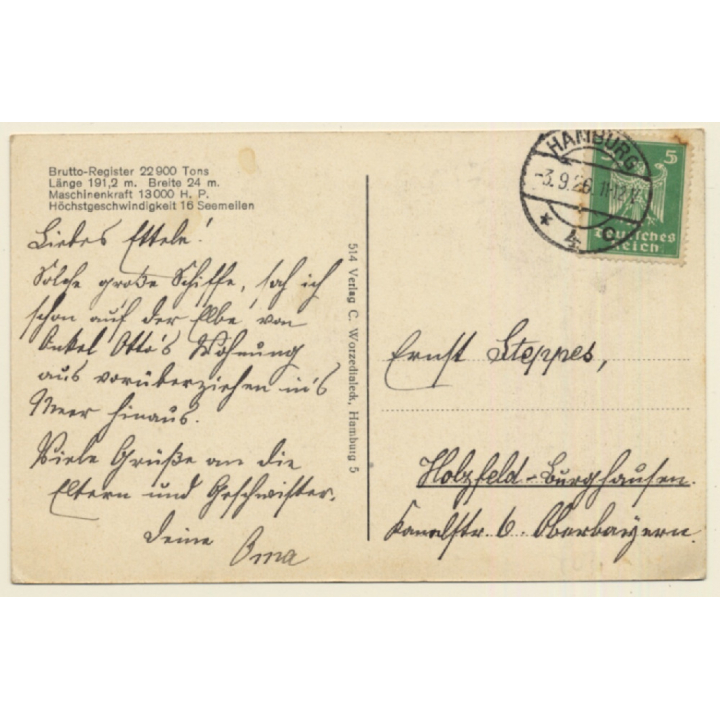 Brutto-Register 22900 Tons
Länge 191,2 m. Breite 24 m.
Maschinenkraft 13000 H. P.
Höchstgeschwindigkeit 16 Seemeilen
Liebes Ettele!
Solche große Schiffe, sah ich
schon auf der Elbe von
Onkel Otto's Wohnung
aus vorüberziehen in's
Meer hinaus.
Viele Grüße an die
Eltern und Geschwister.
Deine Oma
514 Verlag C. Worzedialeck, Hamburg 5
HAMBURG
-3.9.26.11-12V
* 4 c
5
Deutsches
Reich
Ernst Steppes,
Holzfeld-Burghausen.
Kanalstr. 6. Oberbayern.